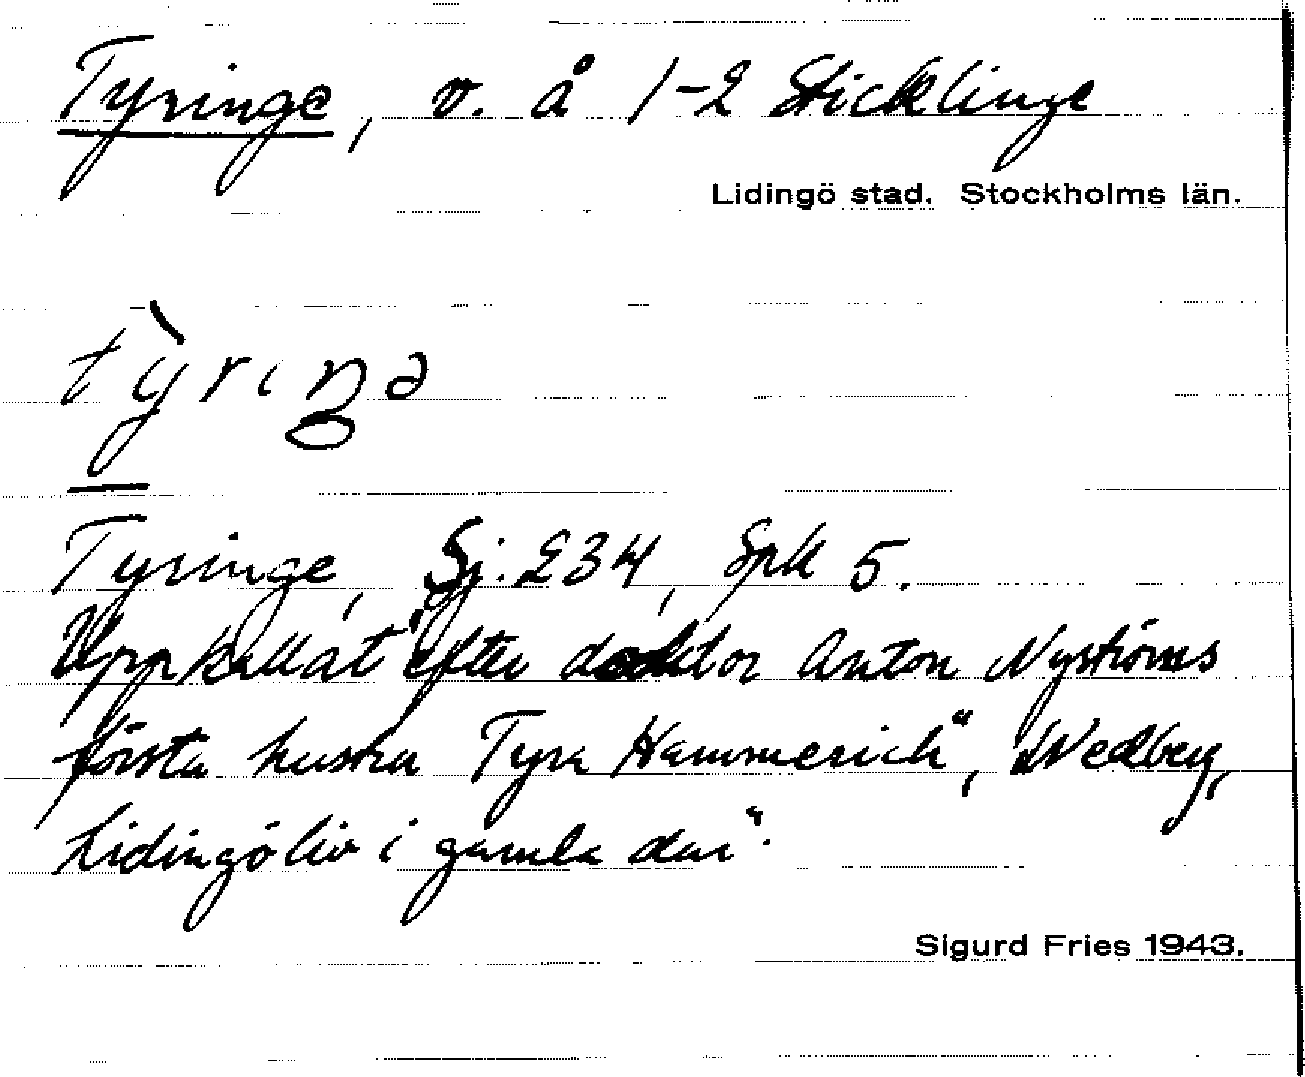 Tyringe, v. å 1-2 Sticklinge
Lidingö stad. Stockholms län.
tỳriŋə
Tyringe, Sj. 234, Spk 5.
Uppkallat "efter doktor Anton Nyströms
första hustru Tyra Hammerich", Wedberg,
Lidingöliv i gamla dar".
Sigurd Fries 1943.